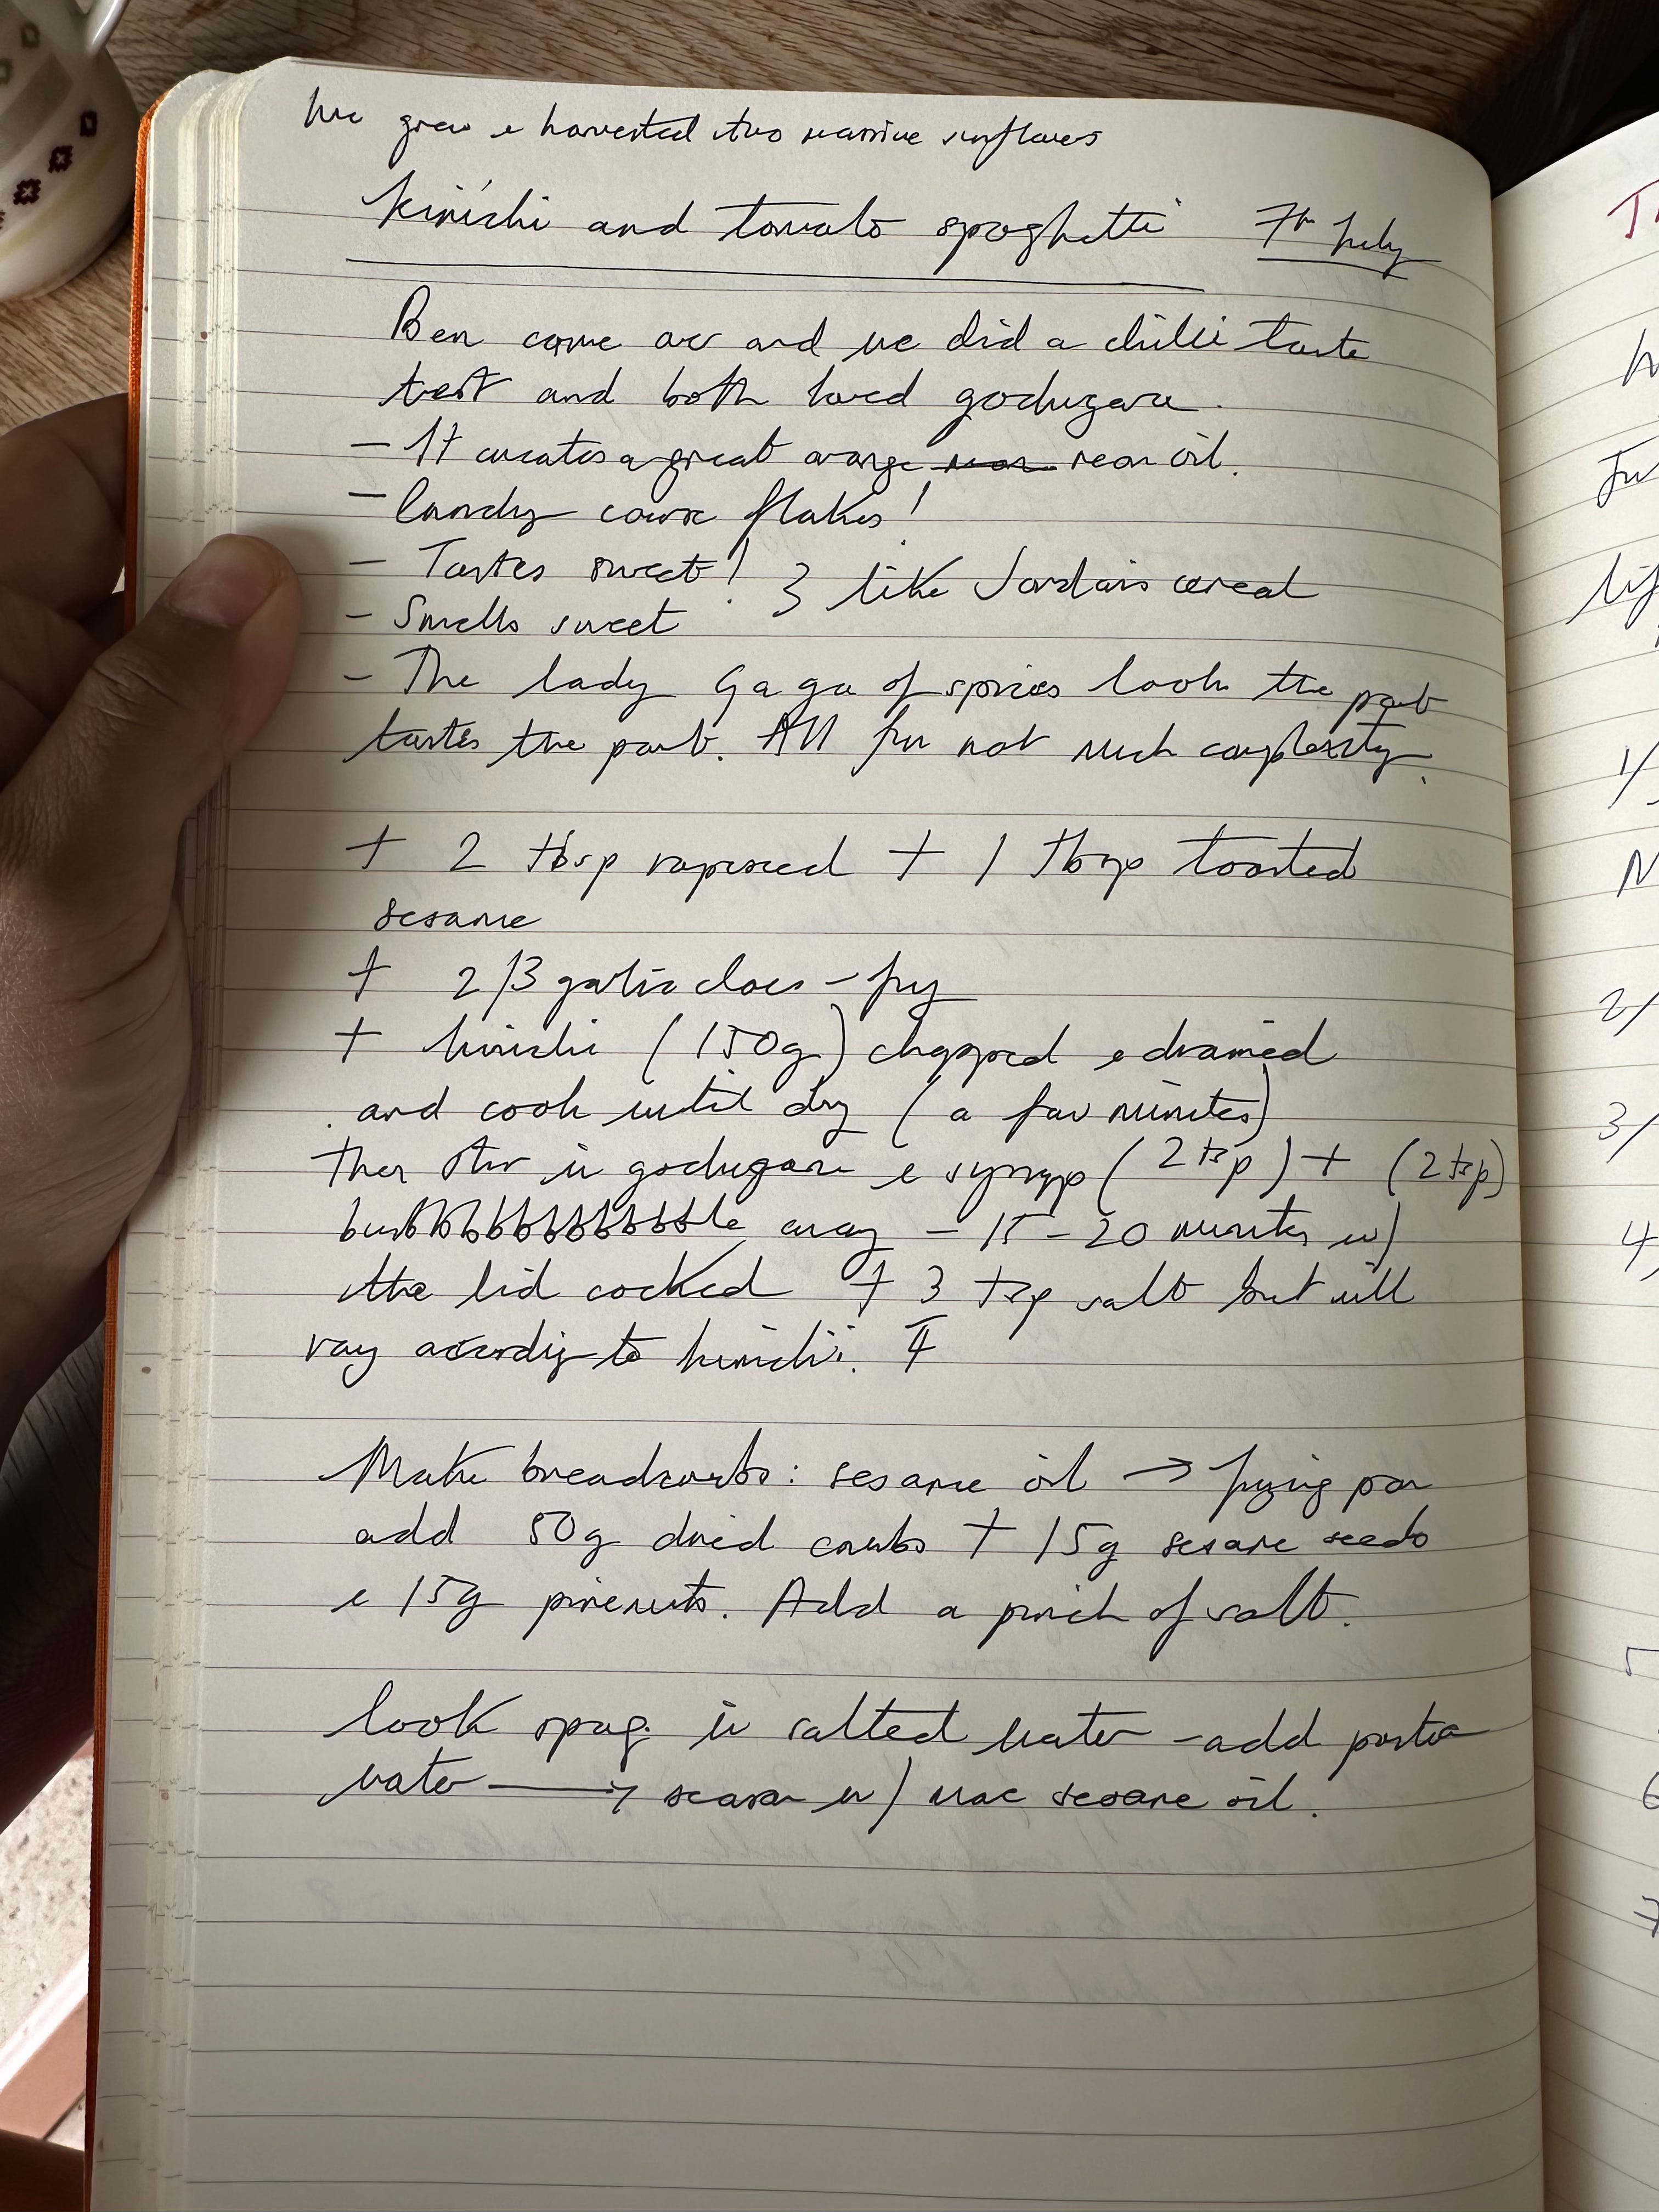 We grew & harvested two massive sunflowers
Kimchi and tomato spaghetti 7th July
Ben came over and we did a chilli taste
test and both loved gochugaru.
- It creates a great orange neon oil.
- Candy cane flakes!
- Tastes sweet! } like Jordans cereal
- Smells sweet
- The lady Gaga of spices look the part
tastes the part. All fun not much complexity.
+ 2 tbsp rapeseed + 1 tbsp toasted
sesame
+ 2/3 garlic cloves - fry
+ kimchi (150g) chopped & drained
and cook until dry (a few minutes)
then stir in gochugaru & syrup (2 tsp) + (2 tsp)
bubbbbbbbbbbbbble away - 15 - 20 minutes w/
the lid cocked + 3/4 tsp salt but will
vary according to kimchi.
Make breadcrumbs: sesame oil → frying pan
add 50g dried crumbs + 15g sesame seeds
& 15g pinenuts. Add a pinch of salt.
Cook spag. in salted water - add pasta
water → season w/ more sesame oil.